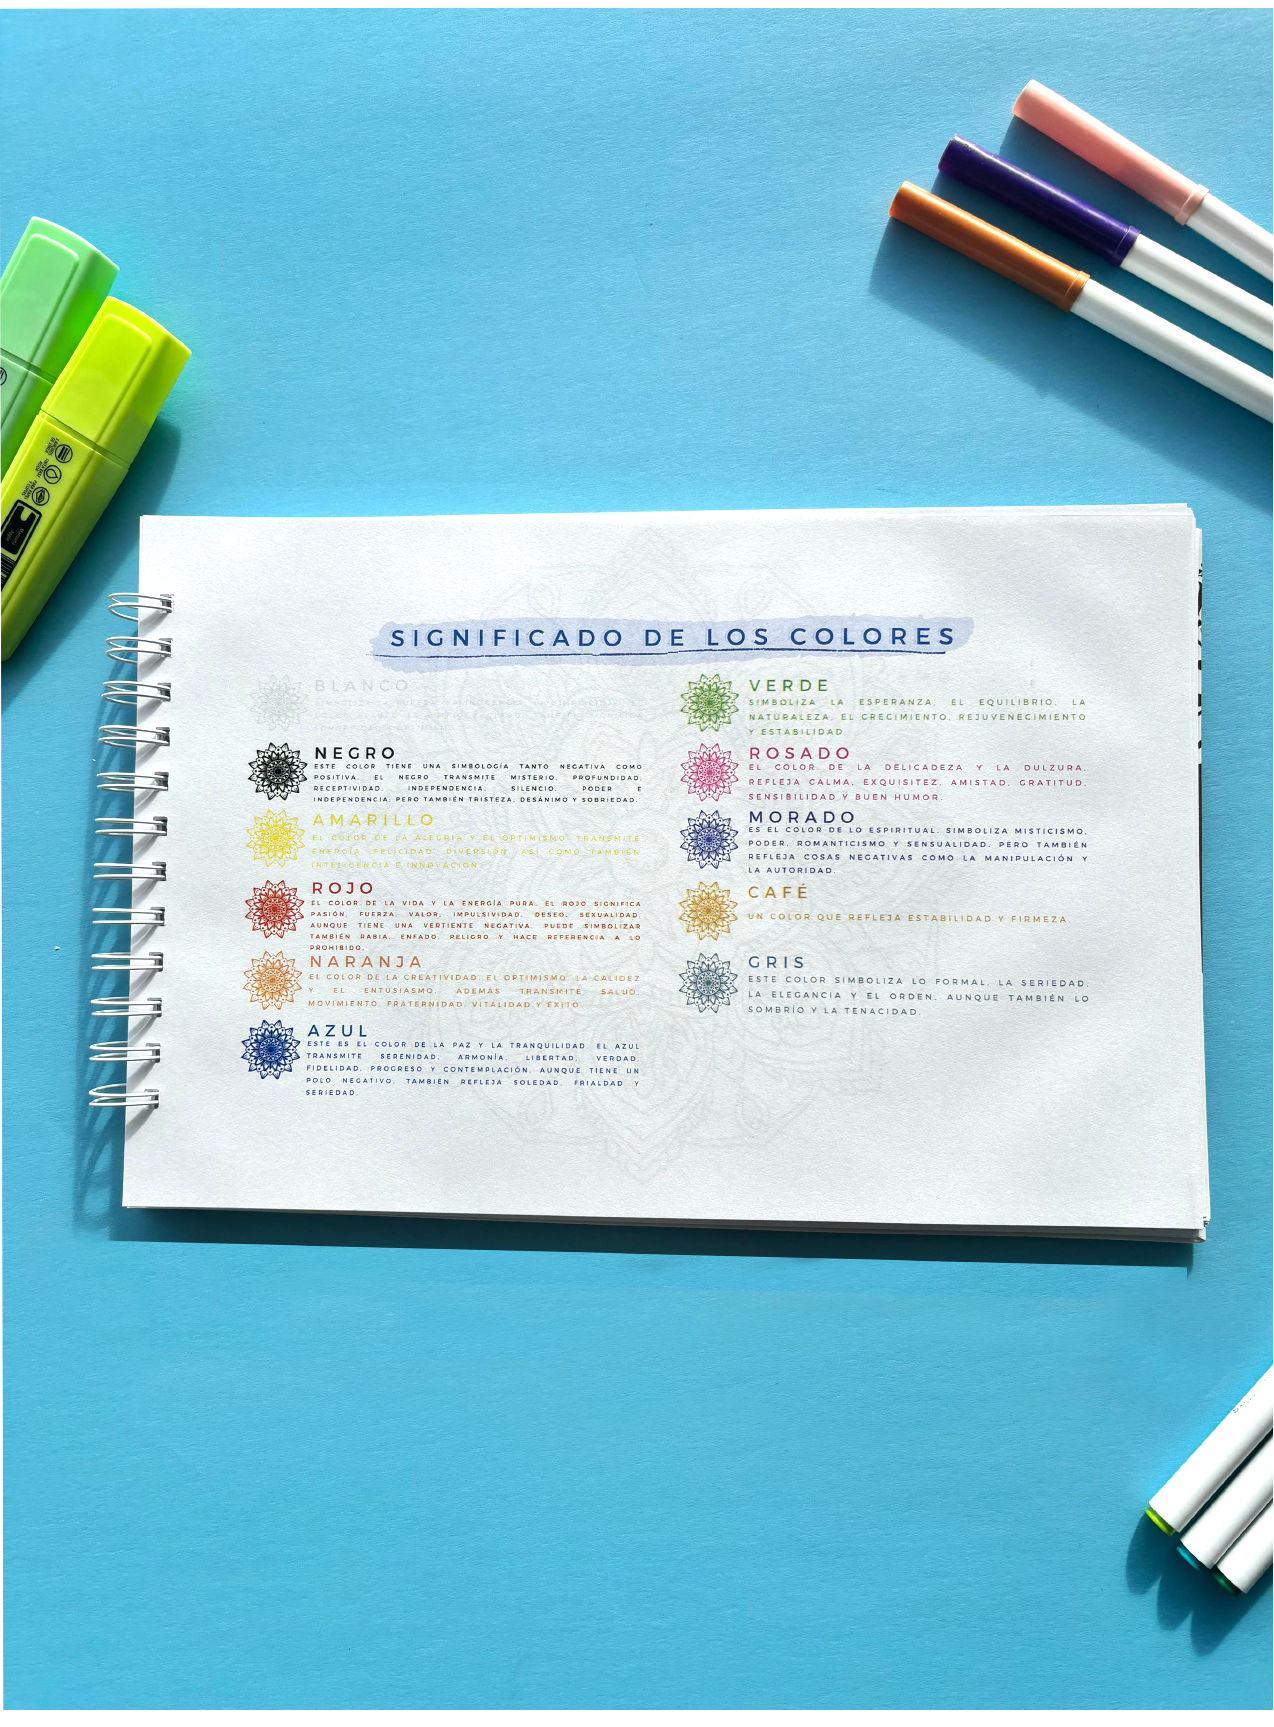 SIGNIFICADO DE LOS COLORES
BLANCO
NEGRO
ESTE COLOR TIENE UNA SIMBOLOGÍA TANTO NEGATIVA COMO
POSITIVA. EL NEGRO TRANSMITE MISTERIO, PROFUNDIDAD,
RECEPTIVIDAD, INDEPENDENCIA, SILENCIO, PODER E
INDEPENDENCIA; PERO TAMBIÉN TRISTEZA, DESÁNIMO Y SOBRIEDAD.
AMARILLO
EL COLOR DE LA ALEGRÍA Y EL OPTIMISMO. TRANSMITE
ENERGÍA, FELICIDAD, DIVERSIÓN, ASÍ COMO TAMBIÉN
INTELIGENCIA E INNOVACIÓN.
ROJO
EL COLOR DE LA VIDA Y LA ENERGÍA PURA. EL ROJO SIGNIFICA
PASIÓN, FUERZA, VALOR, IMPULSIVIDAD, DESEO, SEXUALIDAD,
AUNQUE TIENE UNA VERTIENTE NEGATIVA. PUEDE SIMBOLIZAR
TAMBIÉN RABIA, ENFADO, PELIGRO Y HACE REFERENCIA A LO
PROHIBIDO.
NARANJA
EL COLOR DE LA CREATIVIDAD, EL OPTIMISMO, LA CALIDEZ
Y EL ENTUSIASMO. ADEMÁS TRANSMITE SALUD,
MOVIMIENTO, FRATERNIDAD, VITALIDAD Y ÉXITO.
AZUL
ESTE ES EL COLOR DE LA PAZ Y LA TRANQUILIDAD. EL AZUL
TRANSMITE SERENIDAD, ARMONÍA, LIBERTAD, VERDAD,
FIDELIDAD, PROGRESO Y CONTEMPLACIÓN. AUNQUE TIENE UN
POLO NEGATIVO. TAMBIÉN REFLEJA SOLEDAD, FRIALDAD Y
SERIEDAD
VERDE
SIMBOLIZA LA ESPERANZA, EL EQUILIBRIO, LA
NATURALEZA, EL CRECIMIENTO, REJUVENECIMIENTO
Y ESTABILIDAD.
ROSADO
EL COLOR DE LA DELICADEZA Y LA DULZURA.
REFLEJA CALMA, EXQUISITEZ, AMISTAD, GRATITUD,
SENSIBILIDAD Y BUEN HUMOR.
MORADO
ES EL COLOR DE LO ESPIRITUAL. SIMBOLIZA MISTICISMO,
PODER, ROMANTICISMO Y SENSUALIDAD. PERO TAMBIÉN
REFLEJA COSAS NEGATIVAS COMO LA MANIPULACIÓN Y
LA AUTORIDAD.
CAFÉ
UN COLOR QUE REFLEJA ESTABILIDAD Y FIRMEZA.
GRIS
ESTE COLOR SIMBOLIZA LO FORMAL, LA SERIEDAD,
LA ELEGANCIA Y EL ORDEN. AUNQUE TAMBIÉN LO
SOMBRÍO Y LA TENACIDAD.